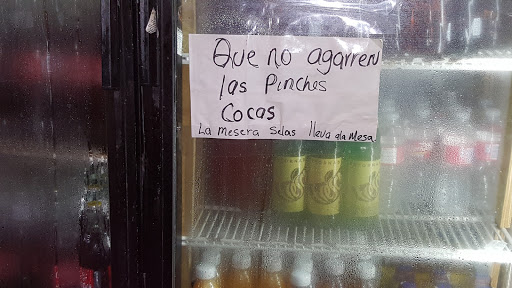 Que no agarren
las Pinches
Cocas
La mesera Selas lleva ala Mesa